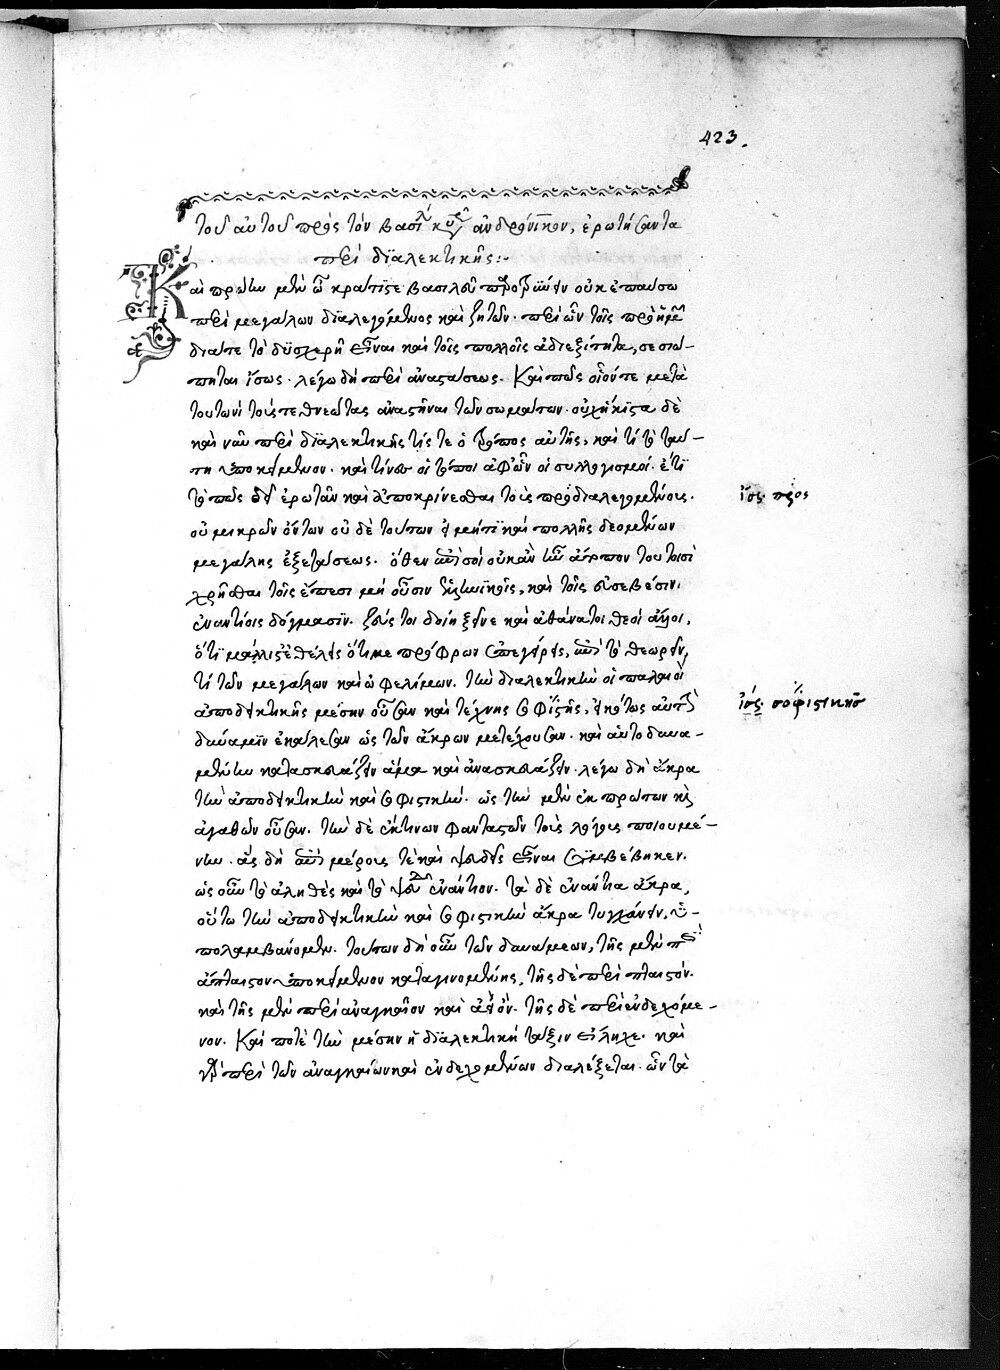 423.
τοῦ αὐτοῦ πρὸς τὸν βασιλ κυρ ἀνδρόνικον, ἐρωτήσαντα
περὶ διαλεκτικῆς:-
Καὶ πρώτην μὲν ὦ κράτιστε βασιλεῦ οὐκ ἐπαύσω
περὶ μεγάλων διαλεγόμενος καὶ ζητῶν. περὶ ὧν τοῖς πρὸ ἡμῶ
διά τε τὸ δυσχερῆ εἶναι καὶ τοῖς πολλοῖς ἀδιεξίτητα, σεσιώ-
πηται ἴσως. λέγω δὴ περὶ ἀναστάσεως. Καὶ πῶς οἷόν τε μετὰ
τουτωνὶ τούς τεθνεῶτας ἀναστῆναι τῶν σωμάτων. οὐχ ἥκιστα δὲ
καὶ νῦν περὶ διαλεκτικῆς τίς τε ὁ τρόπος αὐτῆς, καὶ τί τὸ ταύ-
τη ὑποκείμενον. καὶ τίνες οἱ τόποι ἀφ' ὧν οἱ συλλογισμοί. ἔτι
τὸ πῶς δεῖ ἐρωτᾶν καὶ ἀποκρίνεσθαι τοὺς προσδιαλεγομένοις.
ἴσ. πρὸς
οὐ μικρῶν ὄντων οὐδὲ τούτων εἰ μή τι καὶ πολλῆς δεομένων
μεγάλης ἐξετάσεως. ὅθεν σοὶ οὐκ ἂν ἄτοπον τουτοισὶ
χρῆσθαι τοῖς ἔπεσι μὴ οὖσιν καὶ τοῖς εὐσεβέσιν
ἐναντίοις δόγμασιν. ζεύς τοι δοίη ξεῖνε καὶ ἀθάνατοι θεοὶ ἄλλοι,
ὅττι μάλιστ' ἐθέλεις ὅτι με πρόφρων ὑπεγείρεις, τὸ θεωρεῖν,
τι τῶν μεγάλων καὶ ὠφελίμων. τὴν διαλεκτικὴν οἱ παλαιοὶ
ἀποδεικτικῆς μέσην οὖσαν καὶ τέχνης σοφίστης, εἰκότως αὐτὴν
ἴσ. σοφιστικῆς
δύναμιν ἐκάλεσαν ὡς τῶν ἄκρων μετέχουσαν. καὶ αὐτὸ δυνα-
μένην κατασκευάζειν ἅμα καὶ ἀνασκευάζειν. λέγω δὴ ἄκρα
τὴν ἀποδεικτικὴν καὶ σοφιστικήν. ὡς τὴν μὲν ἐκ πρώτων καὶ
ἀγαθῶν οὖσαν. τὴν δὲ ἔκ τινων φαντασιῶν τοὺς λόγους ποιουμέ-
νην. ἃς δὴ μέρους τε καὶ ψευδεῖς εἶναι συμβέβηκεν.
ὡς οὖν τὸ ἀληθὲς καὶ τὸ ψεῦδος ἐναντίον. τὰ δὲ ἐναντία ἄκρα,
οὕτω τὴν ἀποδεικτικὴν καὶ σοφιστικὴν ἄκρα τυγχάνειν, ὑ-
πολαμβάνομεν. τούτων δὴ οὖν τῶν δυνάμεων, τῆς μὲν περὶ
ἄπταιστον ὑποκείμενον καταγινομένης, τῆς δὲ περὶ πταιστόν.
καὶ τῆς μὲν περὶ ἀναγκαῖον καὶ ἀΐδιον. τῆς δὲ περὶ ἐνδεχόμε-
νον. Καί ποτε τὴν μέσην ἡ διαλεκτικὴ τάξιν εἴληχε. καὶ
περὶ τῶν ἀναγκαίων καὶ ἐνδεχομένων διαλέξεται. ὧν τὰ